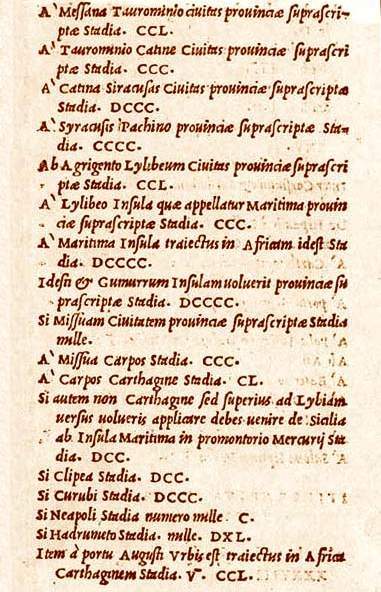 A` Messana Taurominio ciuitas prouinciæ suprascri-
ptæ Stadia. CCL.
A` Taurominio Catine Ciuitas prouinciæ suprascri
ptæ Stadia. CCC.
A` Catina Siracusas Ciuitas prouinciæ suprascriptæ
Stadia. DCCC.
A` Syracusis Pachino prouinciæ suprascriptæ Sta-
dia. CCCC.
Ab Agrigento Lylibeum Ciuitas prouinciæ suprascri
ptæ Stadia. CCL.
A` Lylibeo Insula quæ appellatur Maritima prouin
ciæ suprascriptæ Stadia. CCC.
A` Maritima Insula traiectus in Africam idest Sta
dia. DCCCC.
Idesti & Gumurrum Insulam uoluerit prouinciæ su
prascriptæ Stadia. DCCCC.
Si Missuam Ciuitatem prouinciæ suprascriptæ Stadia
mille.
A` Missua Carpos Stadia. CCC.
A` Carpos Carthagine Stadia. CL.
Si autem non Carthagine sed superius ad Lybiam
uersus uolueris applicare debes uenire de Sicilia
ab Insula Maritima in promontorio Mercurij Sta
dia. DCC.
Si Clipea Stadia. DCC.
Si Curubi Stadia. DCCC.
Si Neapoli Stadia numero mille C.
Si Hadrumeto Stadia. mille. DXL.
Item à portu Augusti Vrbis est traiectus in Africa
Carthaginem Stadia. V. CCL.